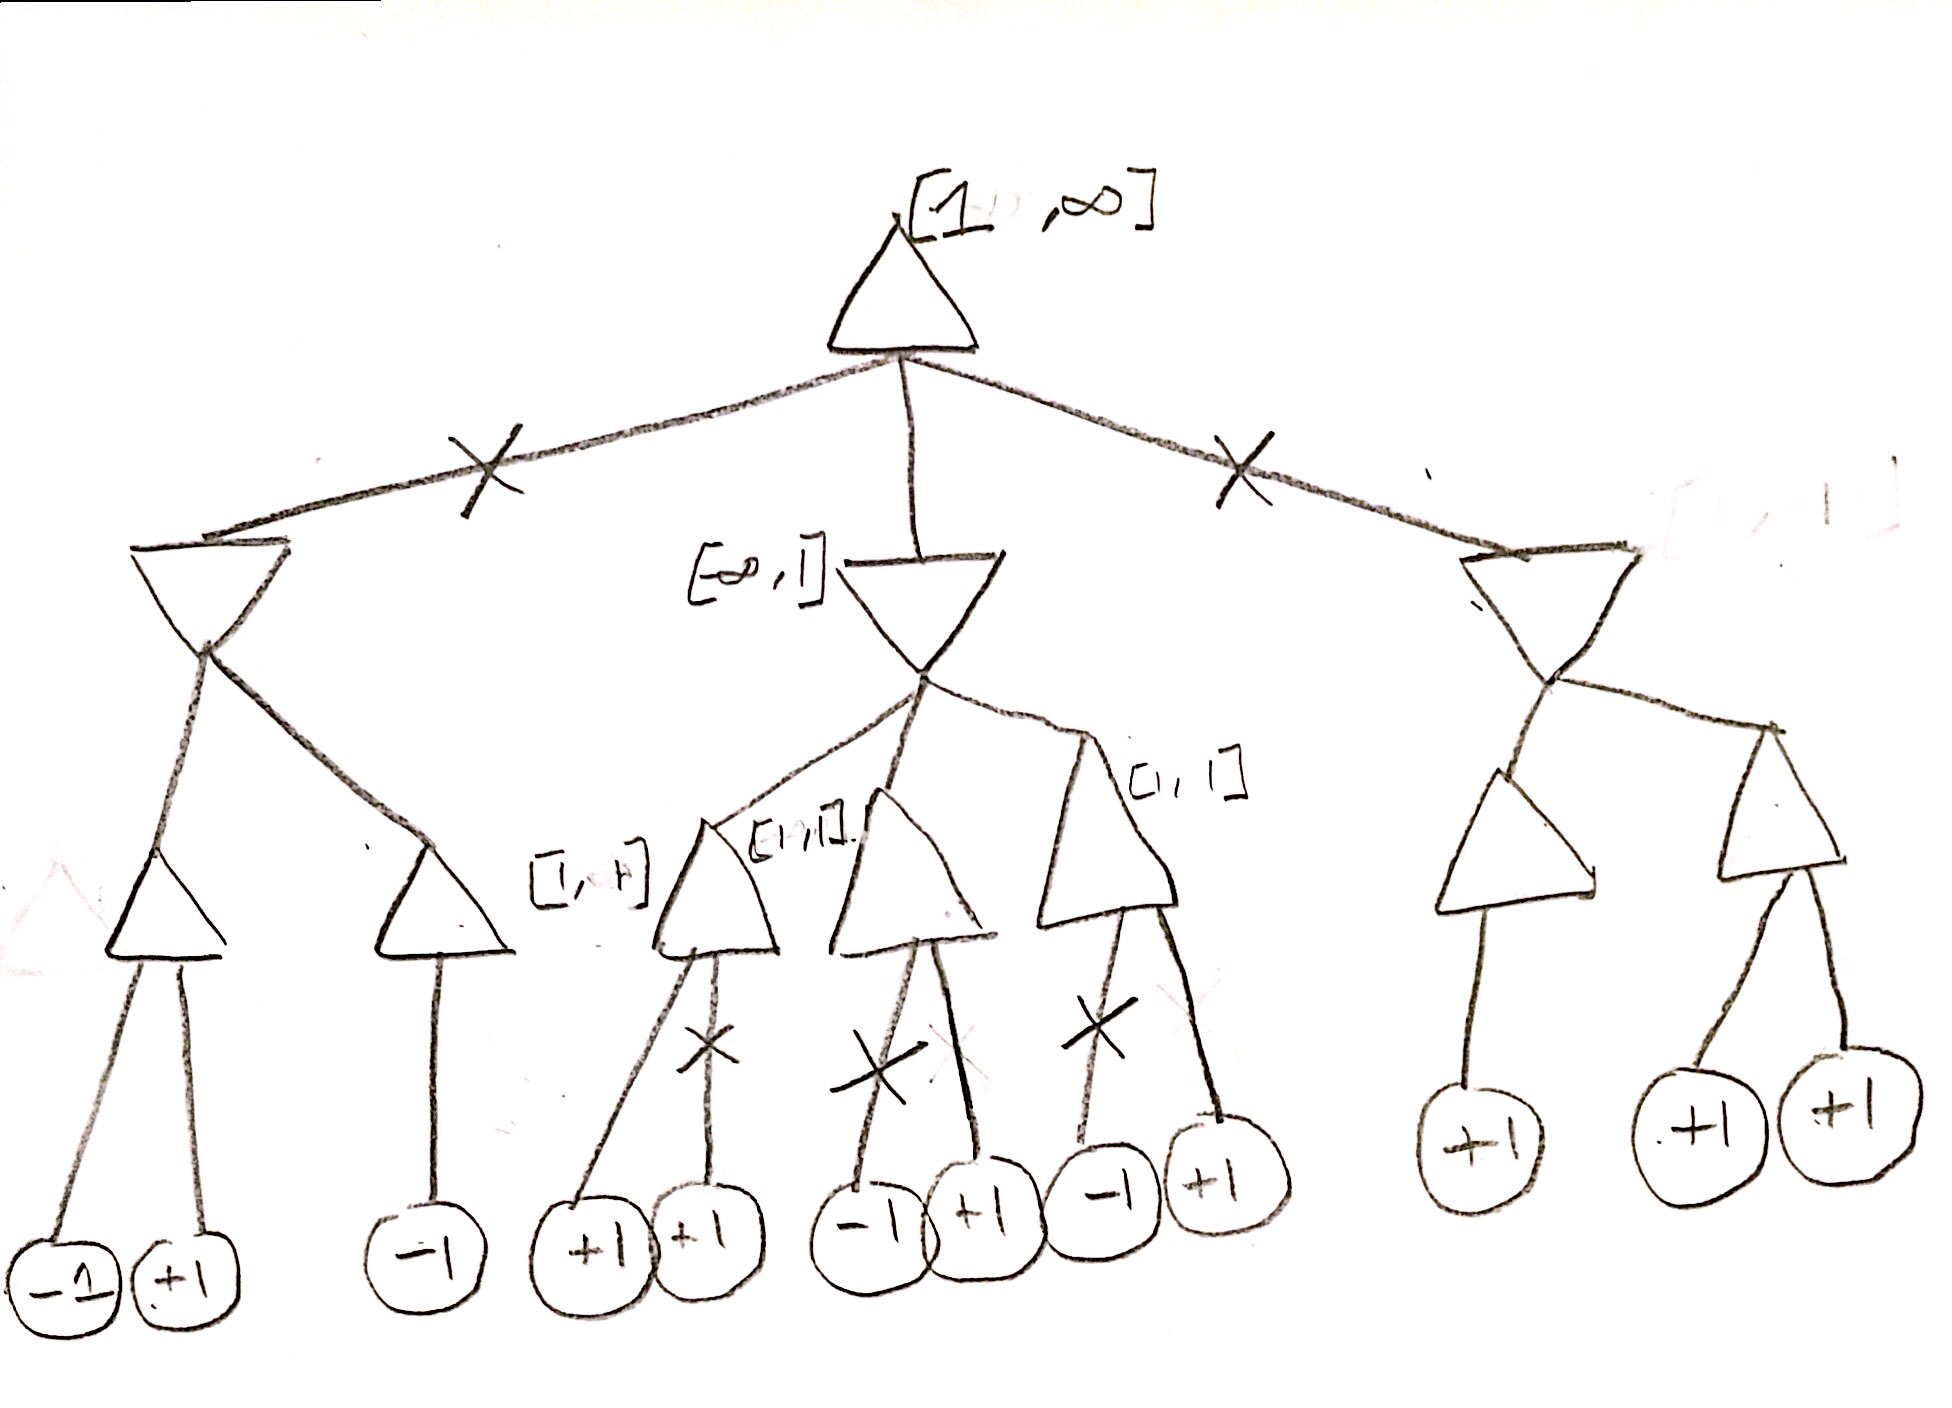 [1 ,∞]
[-∞,1]
[1, 1]
[1,1]
[1, 1]
-1 +1 -1 +1 +1 -1 +1 -1 +1 +1 +1 +1